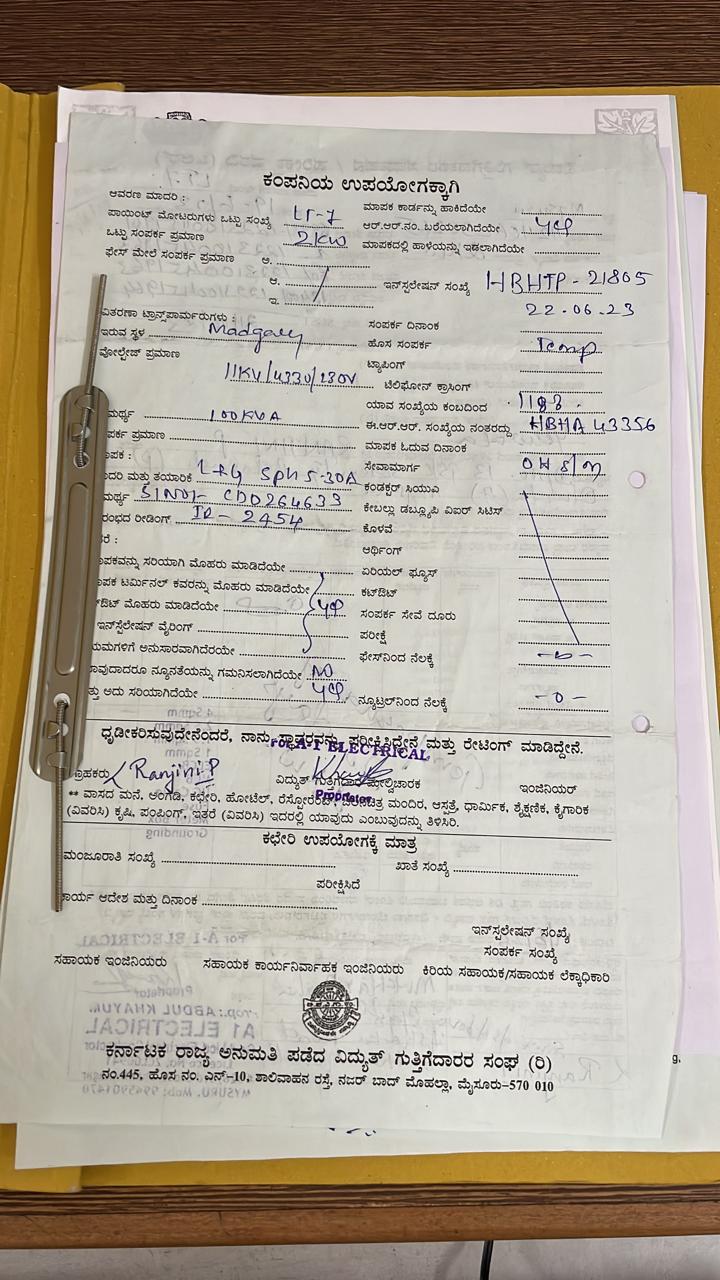 ಕಂಪನಿಯ ಉಪಯೋಗಕ್ಕಾಗಿ
ಆವರಣ ಮಾದರಿ :
ಮಾಪಕ ಕಾರ್ಡನ್ನು ಹಾಕಿದೆಯೇ
ಪಾಯಿಂಟ್ ಮೋಟರುಗಳು ಒಟ್ಟು ಸಂಖ್ಯೆ LT-7
ಆರ್.ಆರ್.ನಂ. ಬರೆಯಲಾಗಿದೆಯೇ
ಒಟ್ಟು ಸಂಪರ್ಕ ಪ್ರಮಾಣ 2KW
ಮಾಪಕದಲ್ಲಿ ಹಾಳೆಯನ್ನು ಇಡಲಾಗಿದೆಯೇ
ಫೇಸ್ ಮೇಲೆ ಸಂಪರ್ಕ ಪ್ರಮಾಣ ಅ.
ಆ.
ಇನ್‌ಸ್ಪಲೇಷನ್ ಸಂಖ್ಯೆ HBHTP-21805
ಇ.
22.06.23
ವಿತರಣಾ ಟ್ರಾನ್ಸ್‌ಫಾರ್ಮರುಗಳು :
ಸಂಪರ್ಕ ದಿನಾಂಕ
ಇರುವ ಸ್ಥಳ
ಹೊಸ ಸಂಪರ್ಕ Temp
ವೋಲ್ಟೇಜ್ ಪ್ರಮಾಣ
ಟ್ಯಾಪಿಂಗ್
11KV/433V/230V
ಟೆಲಿಫೋನ್ ಕ್ರಾಸಿಂಗ್
ಮರ್ಥ್ಯ 100KVA
ಯಾವ ಸಂಖ್ಯೆಯ ಕಂಬದಿಂದ
ಈ.ಆರ್.ಆರ್. ಸಂಖ್ಯೆಯ ನಂತರದ್ದು HBHA 43356
ಪರ್ಕ ಪ್ರಮಾಣ
ಮಾಪಕ ಓದುವ ದಿನಾಂಕ
ಾಪಕ :
ಸೇವಾಮಾರ್ಗ
ಾದರಿ ಮತ್ತು ತಯಾರಿಕೆ L&G Sph 5-30A
ಕಂಡಕ್ಟರ್ ಸಿಯುವಿ
ಮರ್ಥ್ಯ
ಕೇಬಲ್ಲು ಡಬ್ಲ್ಯೂಪಿ ಎಐಆರ್ ಸಿಟಿಸ್
ರಂಭದ ರೀಡಿಂಗ್ IR- 2454
ಕೊಳವೆ
ರೆ :
ಆರ್ಥಿಂಗ್
ಾಪಕವನ್ನು ಸರಿಯಾಗಿ ಮೊಹರು ಮಾಡಿದೆಯೇ
ಏರಿಯಲ್ ಫ್ಯೂಸ್
ಾಪಕ ಟರ್ಮಿನಲ್ ಕವರನ್ನು ಮೊಹರು ಮಾಡಿದೆಯೇ
ಕಟ್‌ಔಟ್
ಟ್‌ಔಟ್ ಮೊಹರು ಮಾಡಿದೆಯೇ
ಸಂಪರ್ಕ ಸೇವೆ ದೂರು
ಇನ್‌ಸ್ಪಲೇಷನ್ ವೈರಿಂಗ್
ಪರೀಕ್ಷೆ
ಯಮಗಳಿಗೆ ಅನುಸಾರವಾಗಿದೆರೆಯೇ
ಫೇಸ್‌ನಿಂದ ನೆಲಕ್ಕೆ -o-
ಾವುದಾದರೂ ನ್ಯೂನತೆಯನ್ನು ಗಮನಿಸಲಾಗಿದೆಯೇ NO
ತ್ತು ಅದು ಸರಿಯಾಗಿದೆಯೇ
ನ್ಯೂಟ್ರಲ್‌ನಿಂದ ನೆಲಕ್ಕೆ -o-
ಧೃಡೀಕರಿಸುವುದೇನೆಂದರೆ, ನಾನು ಸ್ಥಾವರವನ್ನು ಪರೀಕ್ಷಿಸಿದ್ದೇನೆ ಮತ್ತು ರೇಟಿಂಗ್ ಮಾಡಿದ್ದೇನೆ.
For A-1 ELECTRICAL
ಗ್ರಾಹಕರು Ranjini P
ವಿದ್ಯುತ್ ಗುತ್ತಿಗೆದಾರ ಮೇಲ್ವಿಚಾರಕ
ಇಂಜಿನಿಯರ್
Proprietor
** ವಾಸದ ಮನೆ, ಅಂಗಡಿ, ಕಛೇರಿ, ಹೋಟೆಲ್, ರೆಸ್ಟೋರೆಂಟ್, ಚಲಚಿತ್ರ ಮಂದಿರ, ಆಸ್ಪತ್ರೆ, ಧಾರ್ಮಿಕ, ಶೈಕ್ಷಣಿಕ, ಕೈಗಾರಿಕ
(ವಿವರಿಸಿ) ಕೃಷಿ, ಪಂಪಿಂಗ್, ಇತರೆ (ವಿವರಿಸಿ) ಇದರಲ್ಲಿ ಯಾವುದು ಎಂಬುವುದನ್ನು ತಿಳಿಸಿರಿ.
ಕಛೇರಿ ಉಪಯೋಗಕ್ಕೆ ಮಾತ್ರ
ಮಂಜೂರಾತಿ ಸಂಖ್ಯೆ
ಖಾತೆ ಸಂಖ್ಯೆ
ಪರೀಕ್ಷಿಸಿದೆ
ಕಾರ್ಯ ಆದೇಶ ಮತ್ತು ದಿನಾಂಕ
ಇನ್‌ಸ್ಪಲೇಷನ್ ಸಂಖ್ಯೆ
ಸಂಪರ್ಕ ಸಂಖ್ಯೆ
ಸಹಾಯಕ ಇಂಜಿನಿಯರು
ಸಹಾಯಕ ಕಾರ್ಯನಿರ್ವಾಹಕ ಇಂಜಿನಿಯರು
ಕಿರಿಯ ಸಹಾಯಕ/ಸಹಾಯಕ ಲೆಕ್ಕಾಧಿಕಾರಿ
ಕರ್ನಾಟಕ ರಾಜ್ಯ ಅನುಮತಿ ಪಡೆದ ವಿದ್ಯುತ್ ಗುತ್ತಿಗೆದಾರರ ಸಂಘ (ರಿ)
ನಂ.445, ಹೊಸ ನಂ. ಎನ್-10, ಶಾಲಿವಾಹನ ರಸ್ತೆ, ನಜರ್ ಬಾದ್ ಮೊಹಲ್ಲಾ, ಮೈಸೂರು-570 010